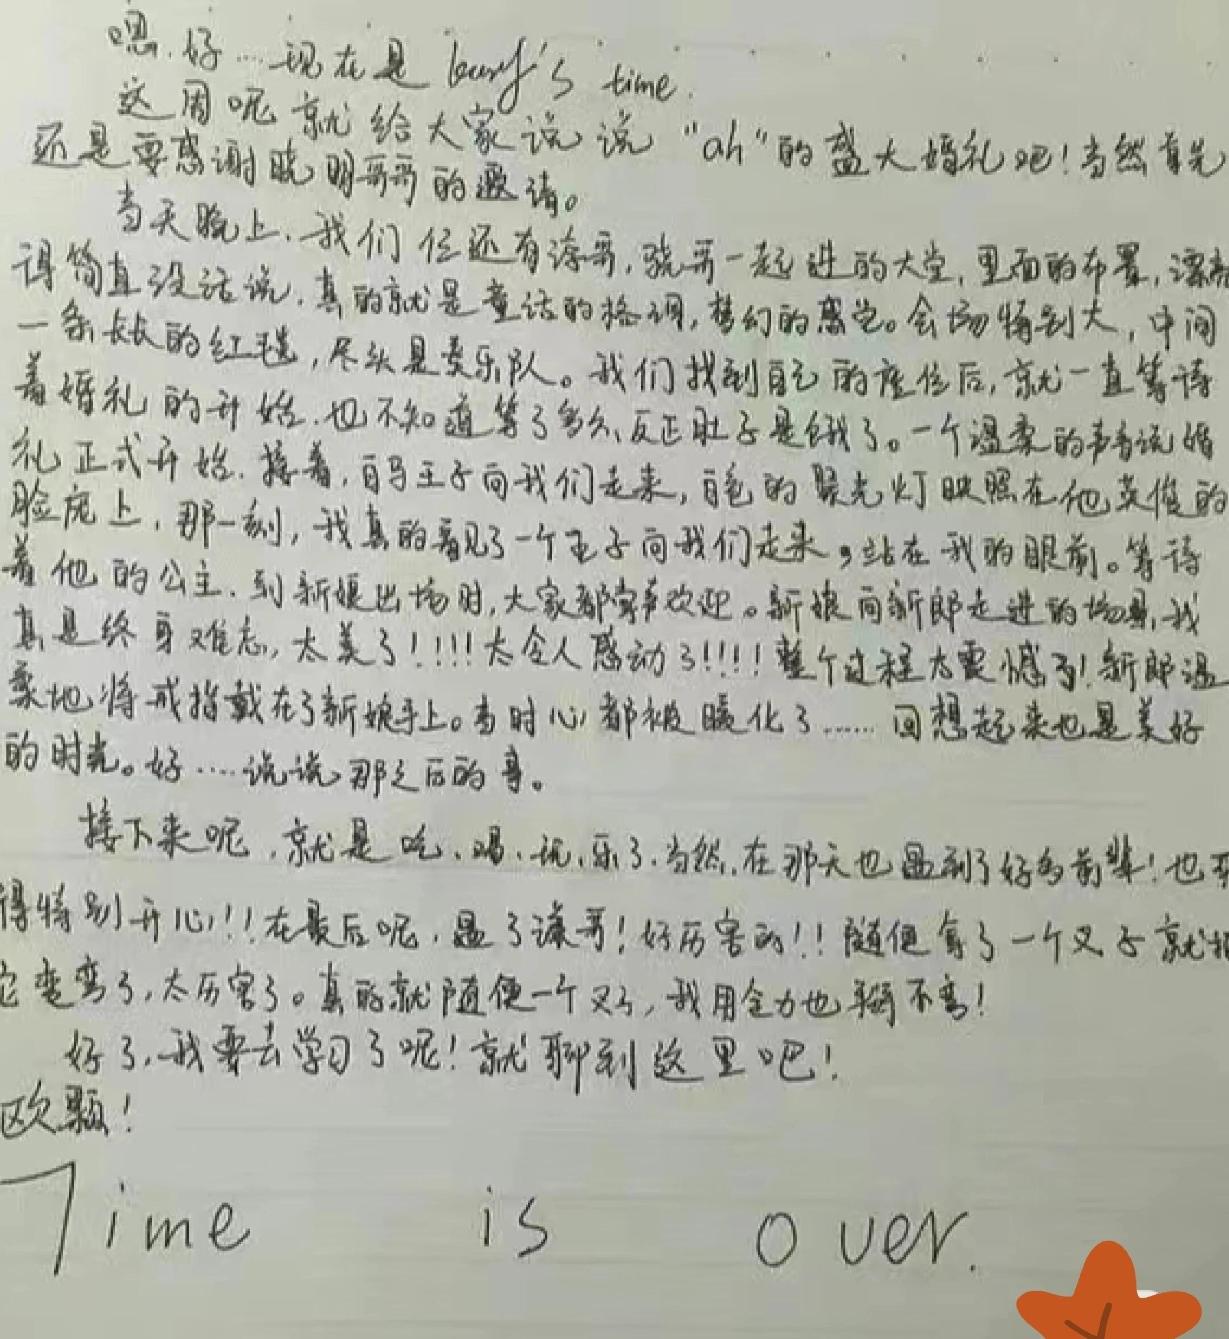 嗯.好....现在是 's time.
这周呢就给大家说说"ah"的盛大婚礼吧!当然首先
还是要感谢晓明哥哥的邀请。
当天晚上,我们位还有涛哥,骁哥一起进的大堂,里面的布置,漂亮
得简直没话说,真的就是童话的格调,梦幻的感觉。会场特别大,中间
一条长长的红毯,尽头是交乐队。我们找到自己的座位后,就一直等待
着婚礼的开始.也不知道等了多久,反正肚子是饿了。一个温柔的声音说婚
礼正式开始.接着,白马王子向我们走来,白色的聚光灯映照在他英俊的
脸庞上,那一刻,我真的看见了一个王子向我们走来,站在我的眼前。等待
着他的公主.到新娘出场时,大家都掌声欢迎。新娘向新郎走进的场景,我
真是终身难忘,太美了!!!!太令人感动了!!!!整个过程太震憾了!新郎温
柔地将戒指戴在了新娘手上。当时心都被暖化了......回想起来也是美好
的时光。好....说说那之后的事。
接下来呢,就是吃、喝、玩、乐了.当然,在那天也遇到了好多前辈!也玩
得特别开心!!在最后呢,遇了谦哥!好厉害的!!随便拿了一个叉子就把
它变弯了,太历害了。真的就随便一个叉子,我用全力也掰不弯!
好了,我要去学习了呢!就聊到这里吧!
欧颗!
Time is over.